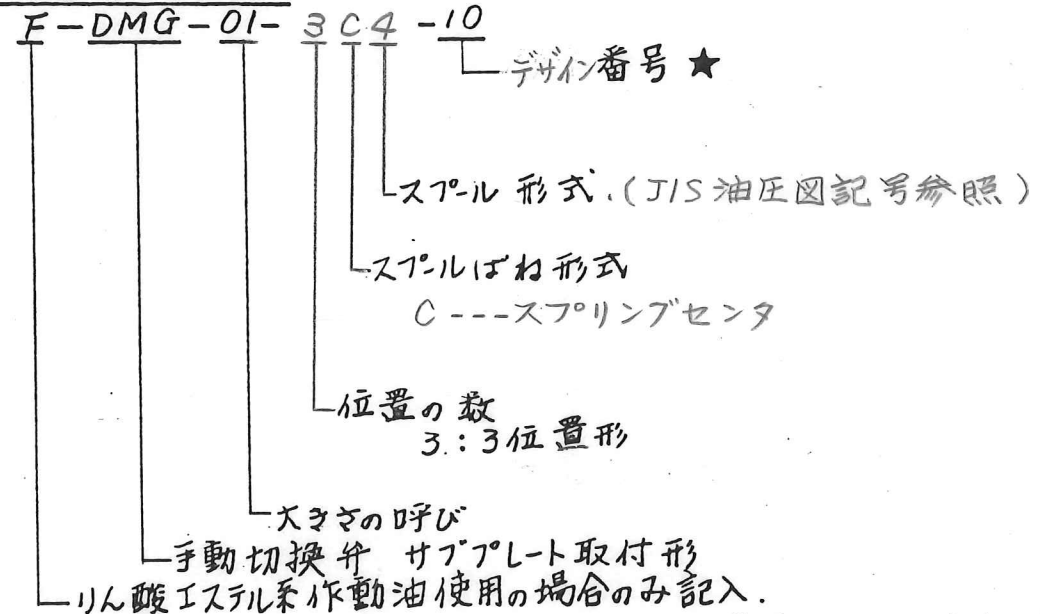 F-DMG-01-3C4-10
デザイン番号 ★
スプール形式.(JIS油圧図記号参照)
スプールばね形式
C---スプリングセンタ
位置の数
3.:3位置形
大きさの呼び
手動切換弁 サブプレート取付形
りん酸エステル系作動油使用の場合のみ記入.